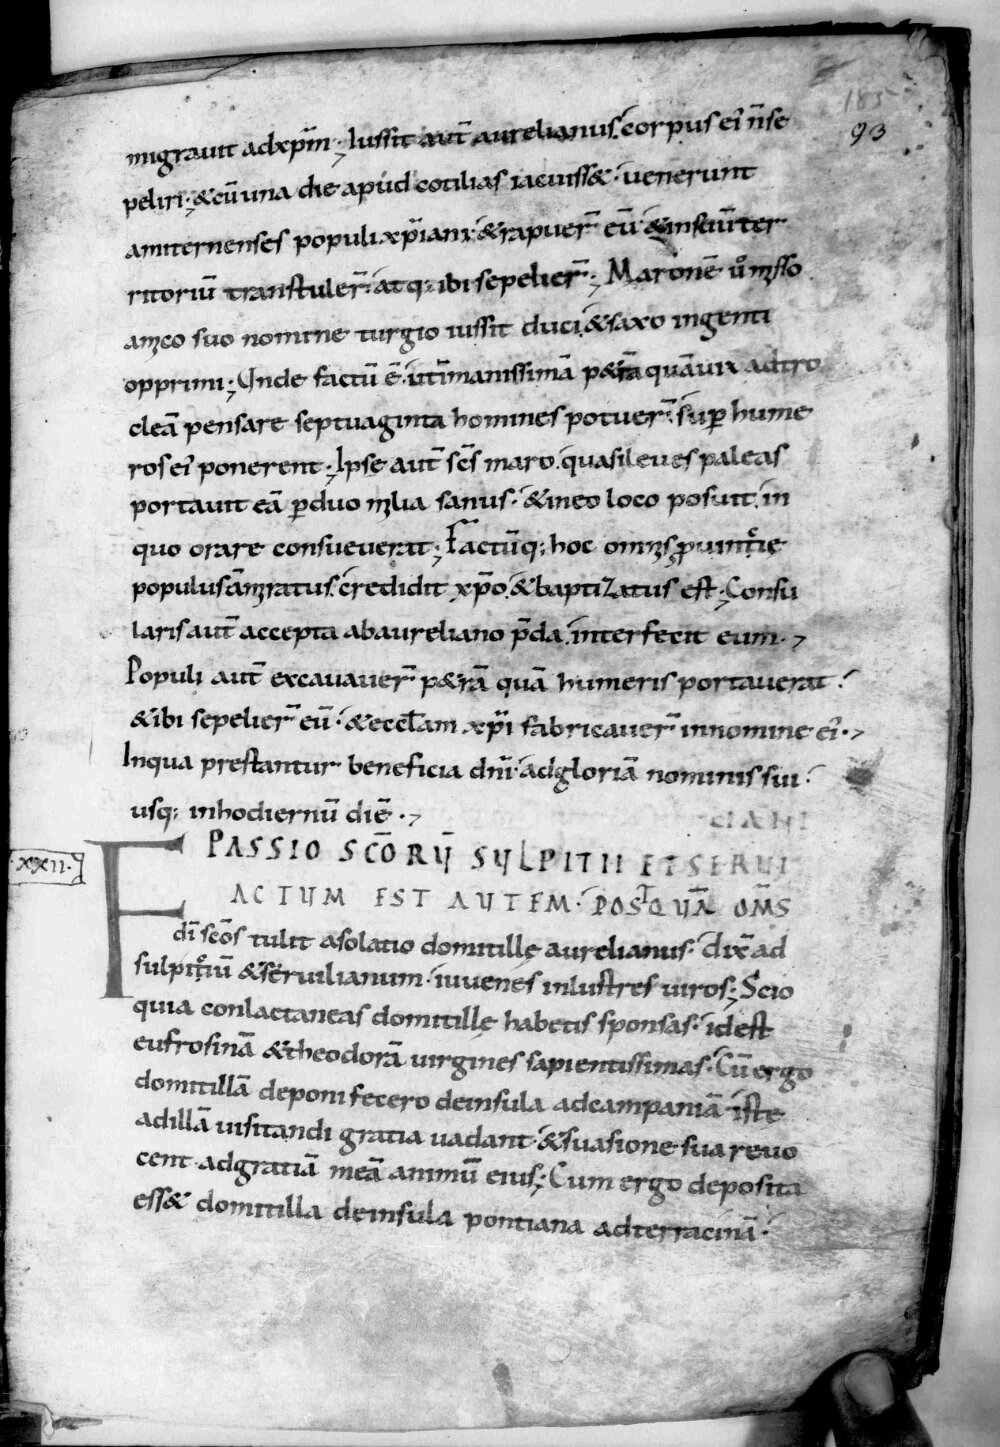 185
93
migravit adxp̄m·; Iussit aut̄ aurelianus. corpus ei' n̄ se
peliri·; & cū una die apud cotilias iacuiss&· venerunt
amiternenses populi xp̄iani· & rapuer̄ eū· & in suū ter
ritoriū transtuler̄· atq; ibi sepelier̄·; Maronē
suo nomine turgio iussit duci, & saxo ingenti
opprimi·; Unde factū ē· ut īmanissimā p&rā quā vix ad tro
cleā pensare septuaginta homines potuer̄· sup hume
ros ei' ponerent·; Ipse aut̄ scs̄ maro. quasi leves paleas
portavit eā p duo milia sanus· & in eo loco posuit. in
quo orare consueverat·; Factūq; hoc omīs provintię
populus amiratus. credidit xp̄o. & baptizatus est·; Consu
laris aut̄ accepta ab aureliano p̄da. interfecit eum·,
Populi aut̄ excavaver̄ p&rā quā humeris portaverat·
& ibi sepelier̄ eū· & eccłam xp̄i fabricaver̄ in nomine ei'·,
In qua prestantur beneficia dn̄i· ad gloriā nominis sui·
usq; in hodiernū diē·,
CIANI
PASSIO SCŌRŪ SULPITII ET SERUI
XXII·
FACTUM EST AUTEM· POSTQUĀ OMS̄
dī scōs tulit a solatio domitillę aurelianus· dix̄ ad
sulpitiū & servilianum· iuvenes inlustres viros·; Scio
quia conlactaneas domitillę habetis sponsas· id est
eufrosinā & theodorā virgines sapientissimas· Cū ergo
domitillā deponi fecero de insula ad campaniā· iste
ad illā visitandi gratia vadant· & suasione sua revo
cent ad gratiā meā animū eius·; Cum ergo deposita
ess& domitilla de insula pontiana ad terracinā·